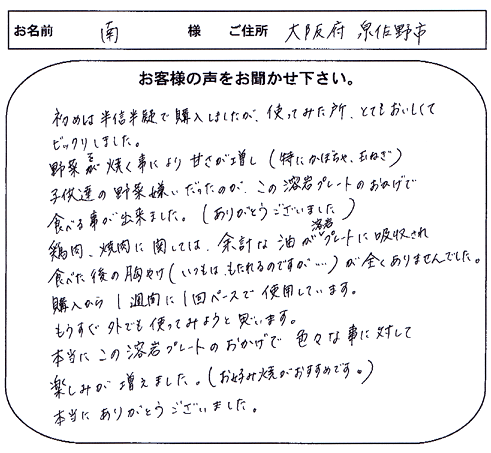 お名前 南 様 ご住所 大阪府 泉佐野市
お客様の声をお聞かせ下さい。
初めは半信半疑で購入しましたが、使ってみた所、とてもおいしくて
ビックリしました。
野菜を焼く事により甘さが増し(特にかぼちゃ、玉ねぎ)
子供達の野菜嫌いだったのが、この溶岩プレートのおかげで
食べる事が出来ました。(ありがとうございました)
鶏肉、焼肉に関しては、余計な油が溶岩プレートに吸収され
食べた後の胸やけ(いつもは、もたれるのですが…)が全くありませんでした。
購入から1週間に1回ペースで使用しています。
もうすぐ外でも使ってみようと思います。
本当にこの溶岩プレートのおかげで色々な事に対して
楽しみが増えました。(お好み焼がおすすめです。)
本当にありがとうございました。